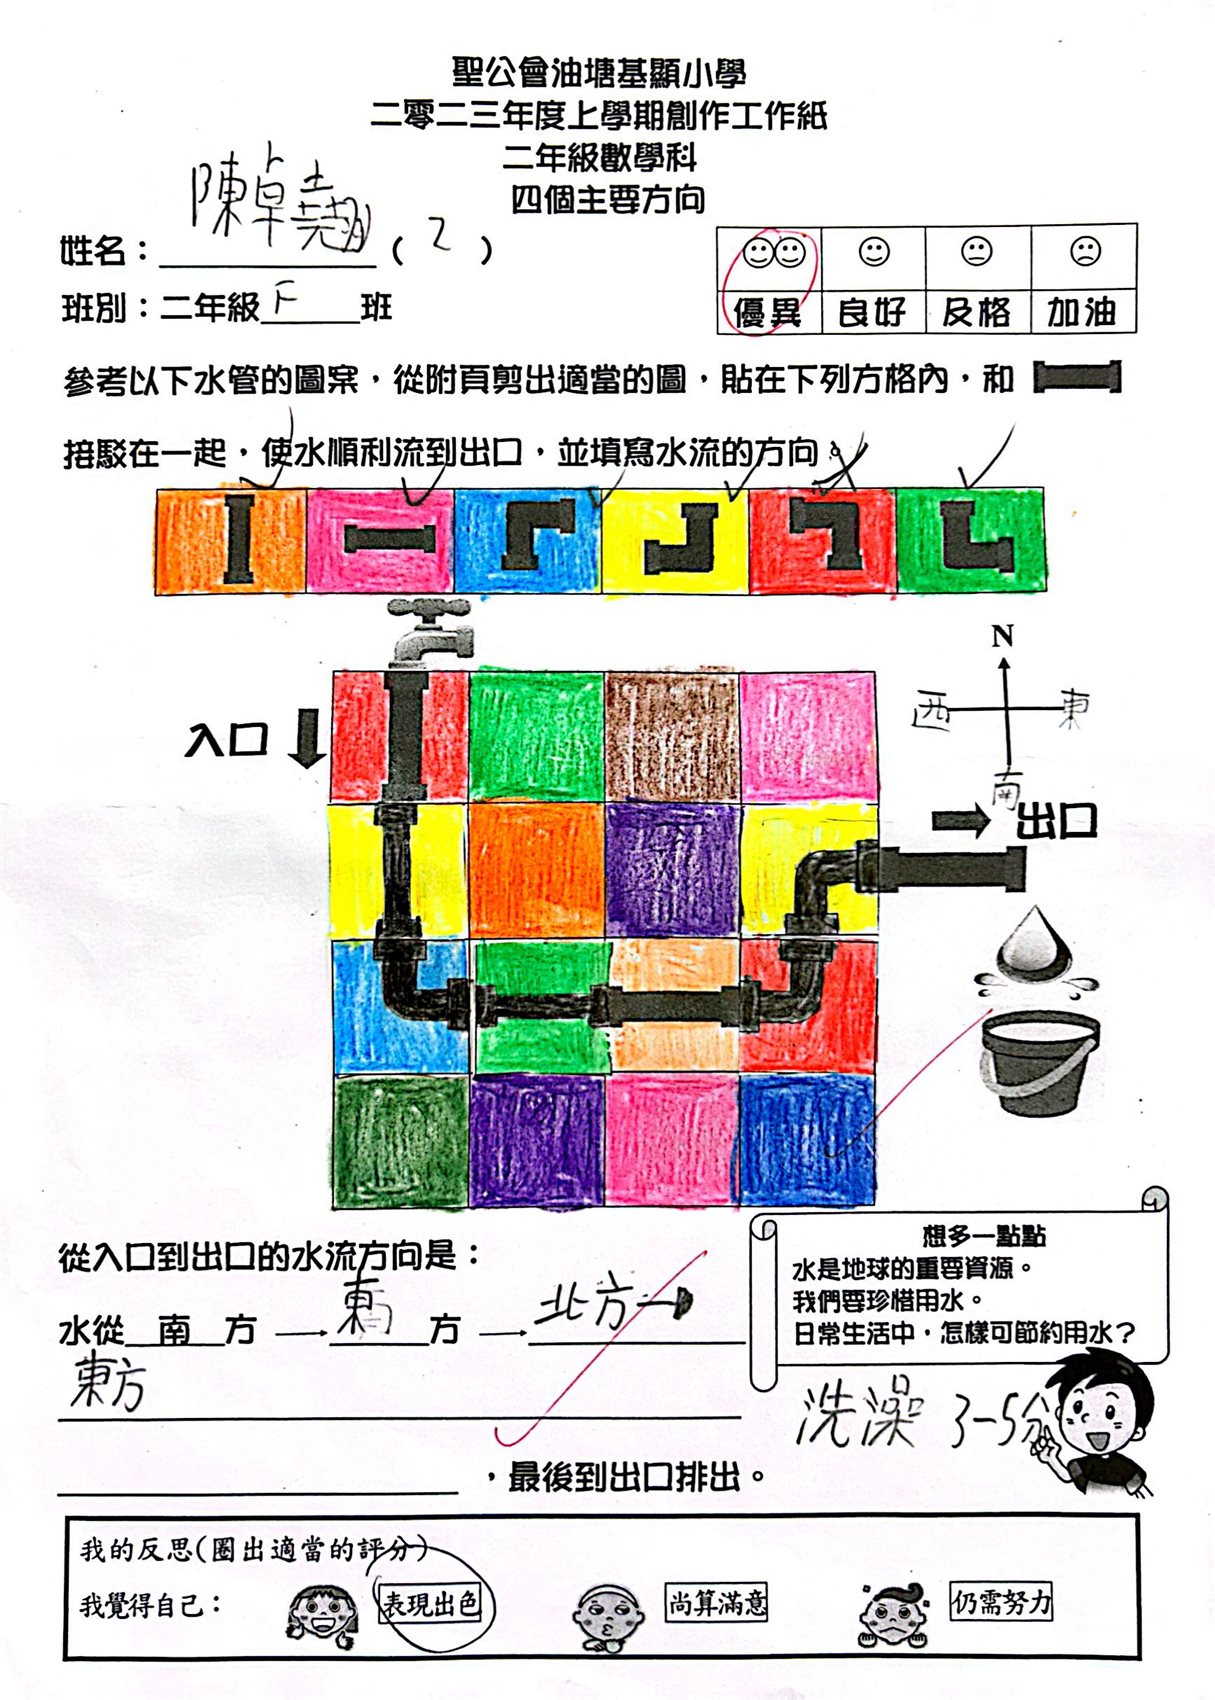 聖公會油塘基顯小學
二零二三年度上學期創作工作紙
二年級數學科
四個主要方向
姓名：陳卓翹（2）
班別：二年級F班
優異 良好 及格 加油
參考以下水管的圖案，從附頁剪出適當的圖，貼在下列方格內，和
接駁在一起，使水順利流到出口，並填寫水流的方向。
N
西 東
南
入口
出口
從入口到出口的水流方向是：
水從 南 方 → 東 方 → 北方→
東方
，最後到出口排出。
想多一點點
水是地球的重要資源。
我們要珍惜用水。
日常生活中，怎樣可節約用水？
洗澡 3-5分
我的反思(圈出適當的評分)
我覺得自己： 表現出色 尚算滿意 仍需努力